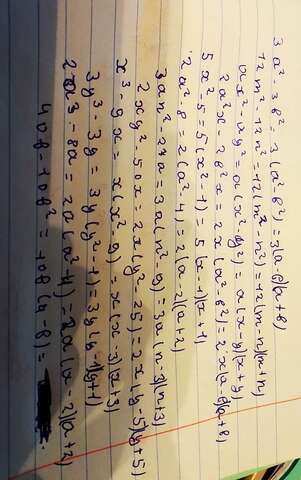 3a²-3b²=3(a²-b²)=3(a-b)(a+b)
12m²-12n²=12(m²-n²)=12(m-n)(m+n)
ax²-ay²=a(x²-y²)=a(x-y)(x+y)
2a²x-2b²x=2x(a²-b²)=2xa-b)(a+b)
5x²-5=5(x²-1)=5(x-1)(x+1)
2a²-8=2(a²-4)=2(a-2)(a+2)
3an²-27a=3a(n²-9)=3a(n-3)(n+3)
2xy²-50x=2x(y²-25)=2x(y-5)(y+5)
x³-9x=x(x²-9)=x(x-3)(x+3)
3y³-3y=3y(y²-1)=3y(y-1)(y+1)
2a³-8a=2a(a²-4)=2a(x-2)(a+2)
40b-10b²=10b(4-b)=